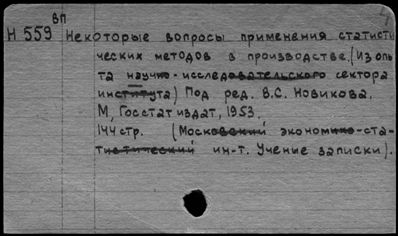 ВП
Н 559 Некоторые вопросы применения статисти
ческих методов в производстве. (Из опы
та научно-исследовательского сектора
института) Под ред. В.С. Новикова.
М, Госстатиздат, 1953.
144 стр. (Московский экономико-ста-
тистический ин-т. Ученые записки).